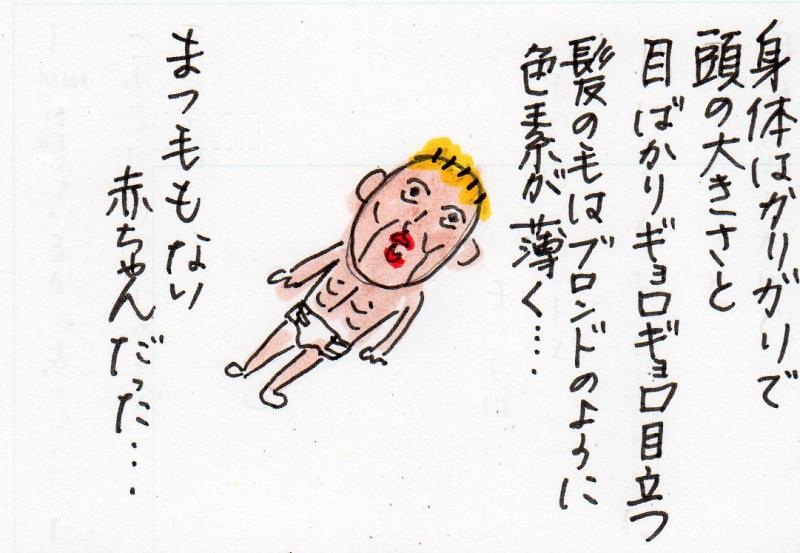 身体はガリガリで
頭の大きさと
目ばかりギョロギョロ目立つ
髪の毛はブロンドのように
色素が薄く....
まつ毛もない
赤ちゃんだった...